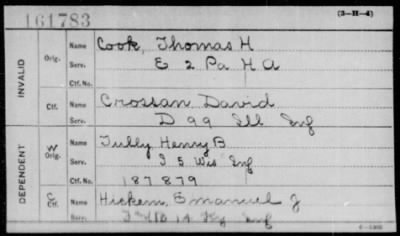 161783 (3-H-4)
INVALID
Orig. Name Cook, Thomas H
Serv. E 2 Pa H A
Ctf. No.
Ctf. Name Crossan David
Serv. D 99 Ill Inf
DEPENDENT
W Orig. Name Tully Henry B
Serv. I 5 Wis Inf
Ctf. No. 187879
C Ctf. Name Emanuel J
Serv. 14 Ky Inf